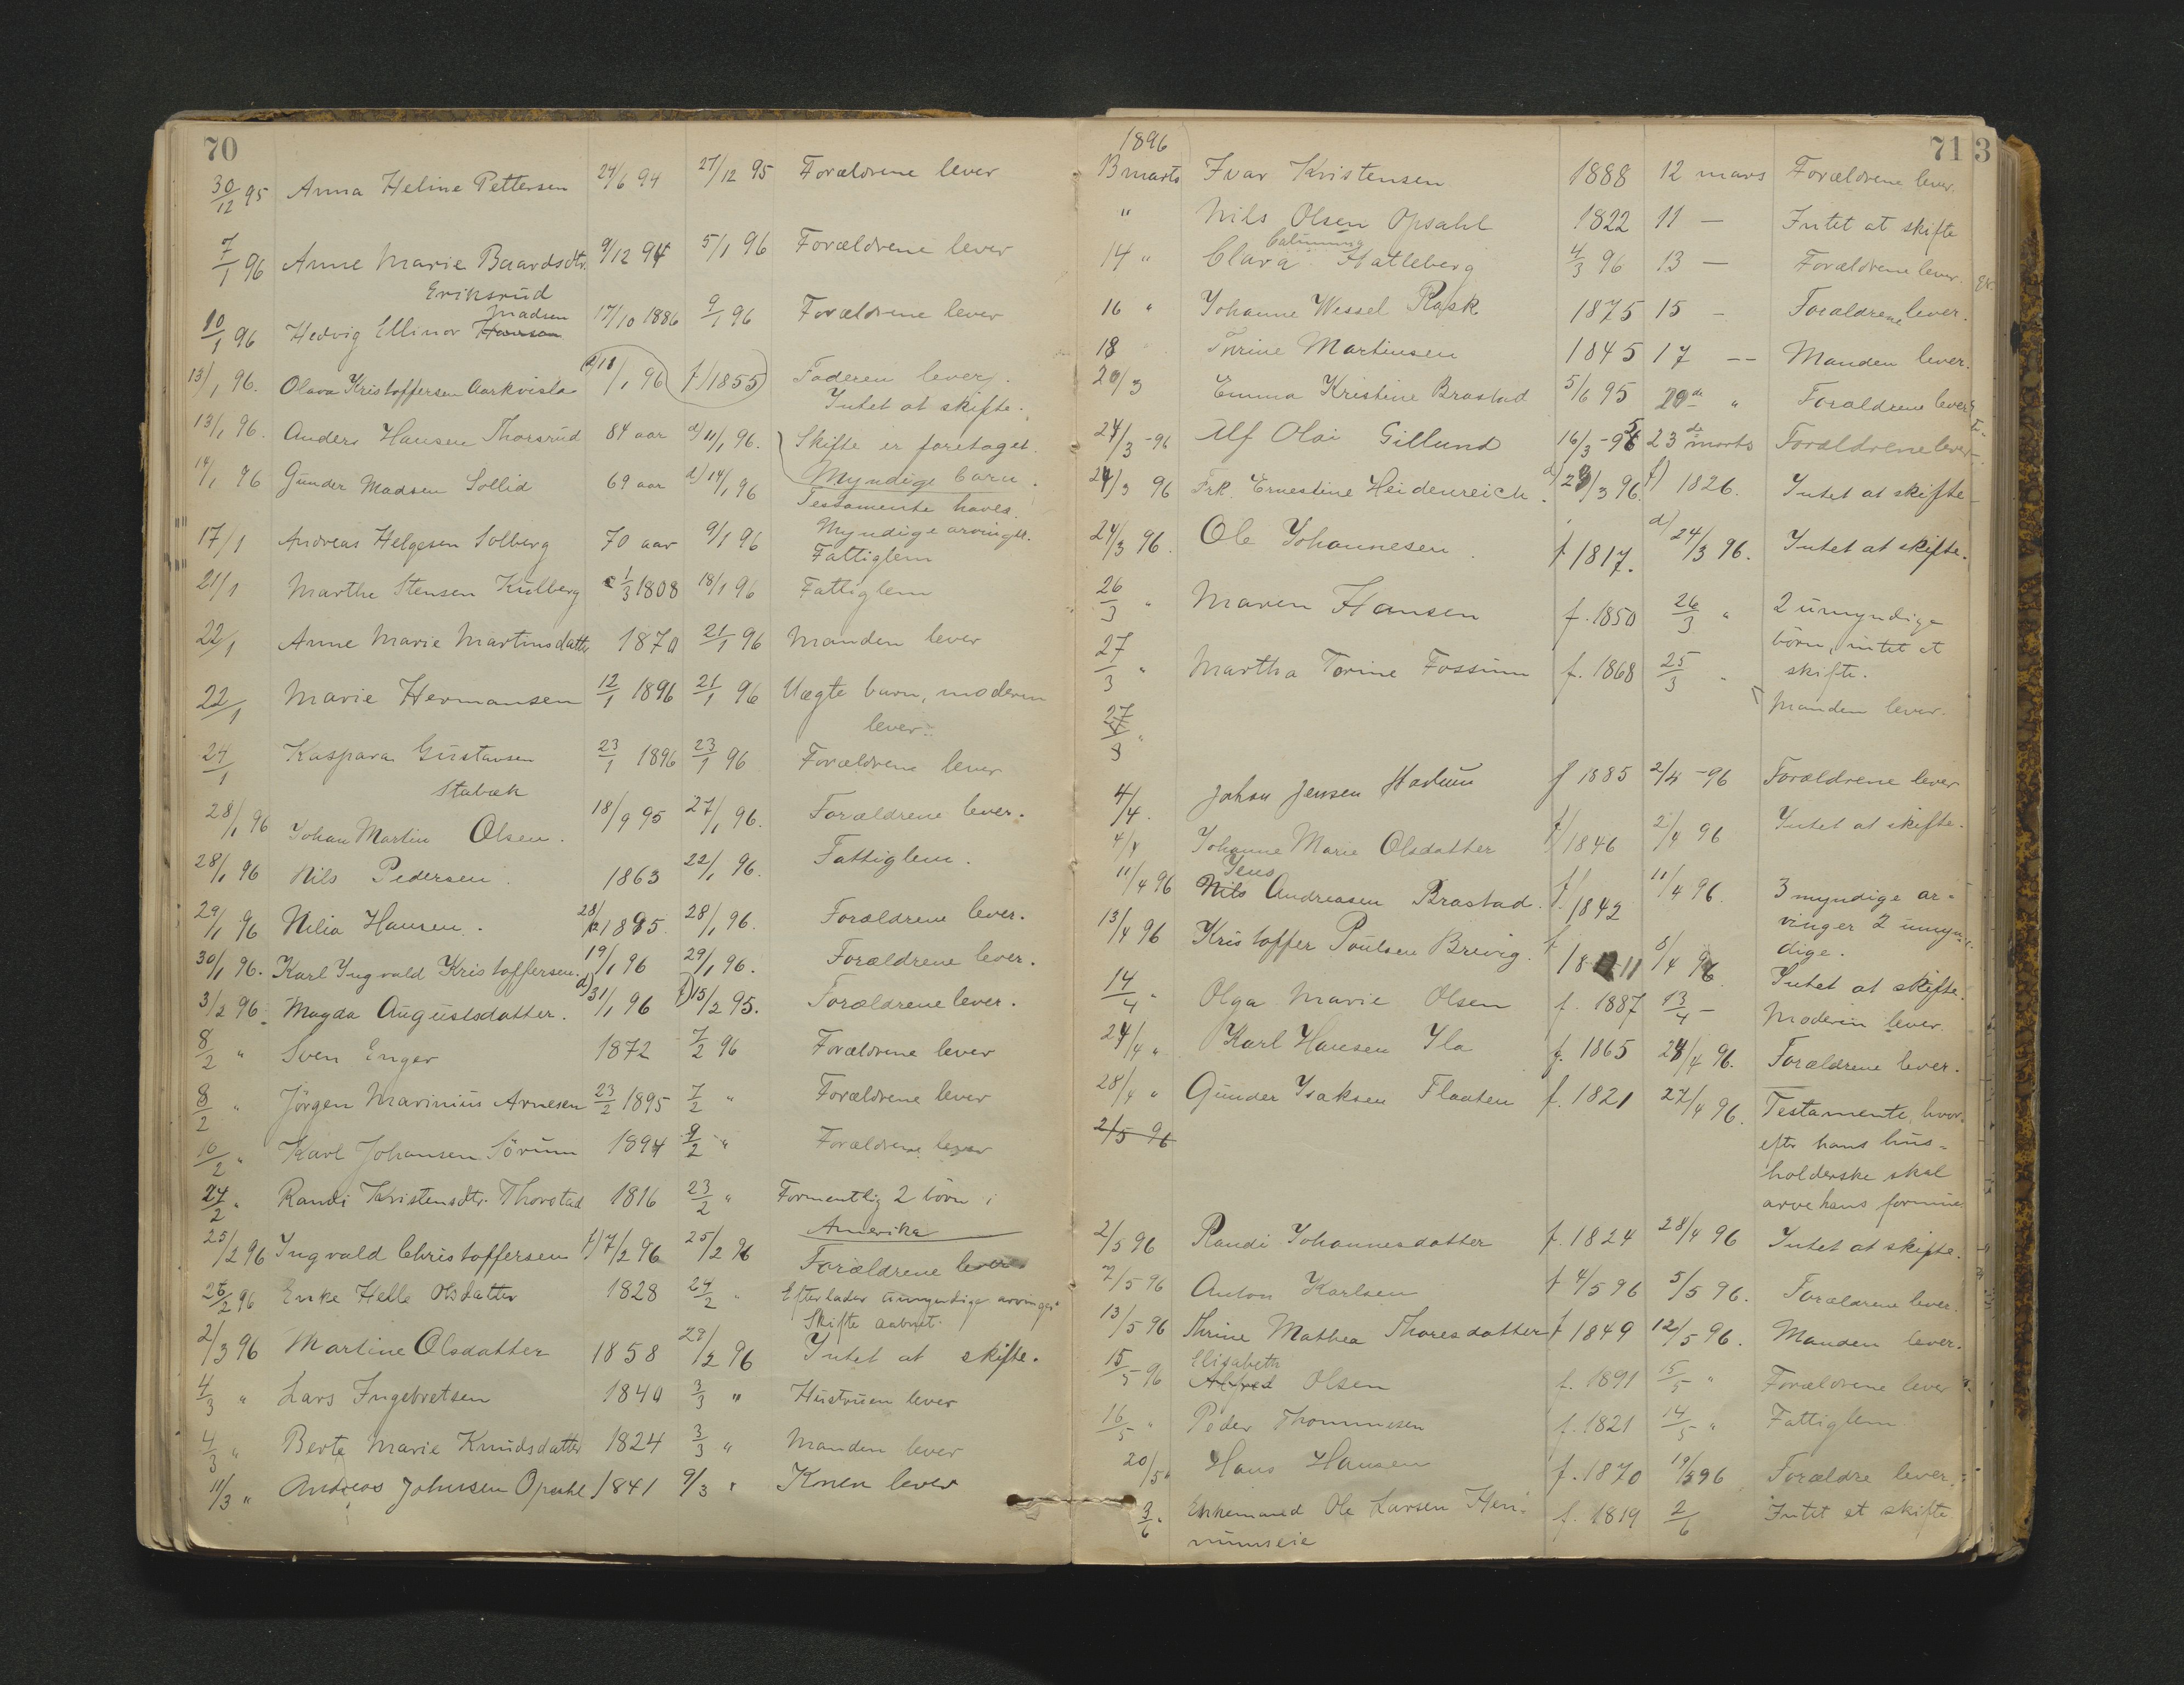 70
30/12 95 Anna Heline Pettersen 24/6 94 27/12 95 Forældrene lever
7/1 96 Anne Marie Baardsdtr. 9/12 94 5/1 96 Forældrene lever
Eriksrud
Madsen
10/1 96 Hedvig Ellinor Hansen 17/10 1886 9/1 96 Forældrene lever
13/1 96. Olava Kristoffersen Aarkvisla d/11/1 96 f/1855 Faderen lever.
Intet at skifte.
13/1 96. Anders Hansen Thorsrud 84 aar d/11/1 96. Skifte er foretaget.
14/1 96 Gunder Madsen Sollid 69 aar d/14/1 96 Myndige barn.
Testamente haves.
Myndige arvinger.
17/1 Andreas Helgesen Solberg 70 aar 9/1 96 Fattiglem
21/1 Marthe Stensen Kulberg 1/3 1808 18/1 96 Fattiglem
22/1 Anne Marie Martinsdatter 1870 21/1 96 Manden lever
22/1 Marie Hermansen 12/1 1896 21/1 96 Uægte barn, moderen
lever
24/1 Kaspara Gustavsen 23/1 1896 23/1 96 Forældrene lever
Stabæk
28/1 96 Johan Martin Olsen. 18/9 95 27/1 96. Forældrene lever.
28/1 96 Nils Pedersen. 1863 22/1 96. Fattiglem.
29/1 96 Nilia Hansen. 28/12 1895. 28/1 96. Forældrene lever.
30/1 96. Karl Ingvald Kristoffersen. 19/1 96 29/1 96. Forældrene lever.
3/2 96. Magda Augustsdatter. d) 31/1 96 f) 15/2 95. Forældrene lever.
8/2 " Sven Enger 1872 7/2 96 Forældrene lever
8/2 " Jörgen Marinius Arnesen 23/2 1895 7/2 " Forældrene lever
10/2 " Karl Johansen Sörum 1894 9/2 " Forældrene lever
24/2 " Randi Kristensdtr. Thorstad 1816 23/2 " Formentlig 2 börn i
Amerika
25/2 96 Ingvald Christoffersen f) 7/2 96 25/2 96 Forældrene lever
26/2 96 Enke Helle Olsdatter 1828 24/2 " Efterlader umyndige arvinger
Skifte aabnet.
2/3 96 Martine Olsdatter 1858 29/2 96 Intet at skifte.
4/3 " Lars Ingebretsen 1840 3/3 " Hustruen lever
4/3 " Berte Marie Knudsdatter 1824 3/3 " Manden lever
11/3 " Andreas Johnsen Opsahl 1841 9/3 " Konen lever
71 3
1896
13 marts Ivar Kristensen 1888 12 mars Forældrene lever.
" Nils Olsen Opsahl 1822 11 — Intet at skifte
14 " Clara Hatleberg 4/3 96 13 — Forældrene lever.
16 " Johanne Wessel Rask 1875 15 - Forældrene lever.
18 Thrine Martinsen 1845 17 -- Manden lever.
20/3 Emma Kristine Brastad 5/6 95 20de " Forældrene lever
24/3 -96 Alf Olai Gillund 16/3 -95 23de marts Forældrene lever
24/3 96 Frk. Ernestine Heidenreich. d) 23/3 96. f) 1826. Intet at skifte
24/3 96. Ole Johannesen. f 1817. d/24/3 96. Intet at skifte.
26/3 " Maren Hansen f. 1850 26/3 " 2 umyndige
börn, intet at
skifte.
27/3 " Martha Torine Fossum f. 1868 25/3 " Manden lever.
27/3 "
4/4. Johan Jensen f 1885 2/4 -96 Forældrene lever
4/4 Johanne Marie Olsdatter f/1846 2/4 96 Intet at skifte.
Jens
11/4 96 Nils Andreasen Brastad. f. 1842 11/4 96. 3 myndige ar-
vinger 2 umyn-
dige.
13/4 96 Kristoffer Poulsen Brevig. f 1811 8/4 96 Intet at skifte.
14/4 " Olga Marie Olsen f. 1887 13/4 - Moderen lever.
24/4 " Karl Hansen Yla f. 1865 24/4 96. Forældrene lever.
28/4 " Gunder Isaksen Flaaten f. 1821 27/4 96. Testamente, hvor-
efter hans hus-
holderske skal
arve hans formue
2/5 96
2/5 96 Randi Johannesdatter f. 1824 28/4 96 Intet at skifte.
7/5 96 Anton Karlsen f 4/5 96 5/5 96. Forældrene lever.
13/5 96 Thrine Mathea Thoresdatter f 1849 12/5 96. Manden lever.
Elisabeth
15/5 -96 Alfred Olsen f. 1891 15/5 " Forældrene lever
16/5 " Peder Thommesen f. 1821 14/5 " Fattiglem
20/5 " Hans Hansen f. 1870 19/5 96 Forældre lever.
3/6 " Enkemand Ole Larsen Hen- f. 1819 2/6 Intet at skifte
numseie